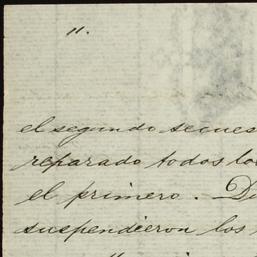 11.
el segundo secues
reparado todos los
el primero. De
suspendieron los